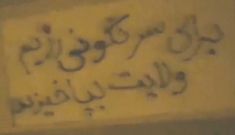 برای سرنگونی رژیم
ولایت بپاخیزیم